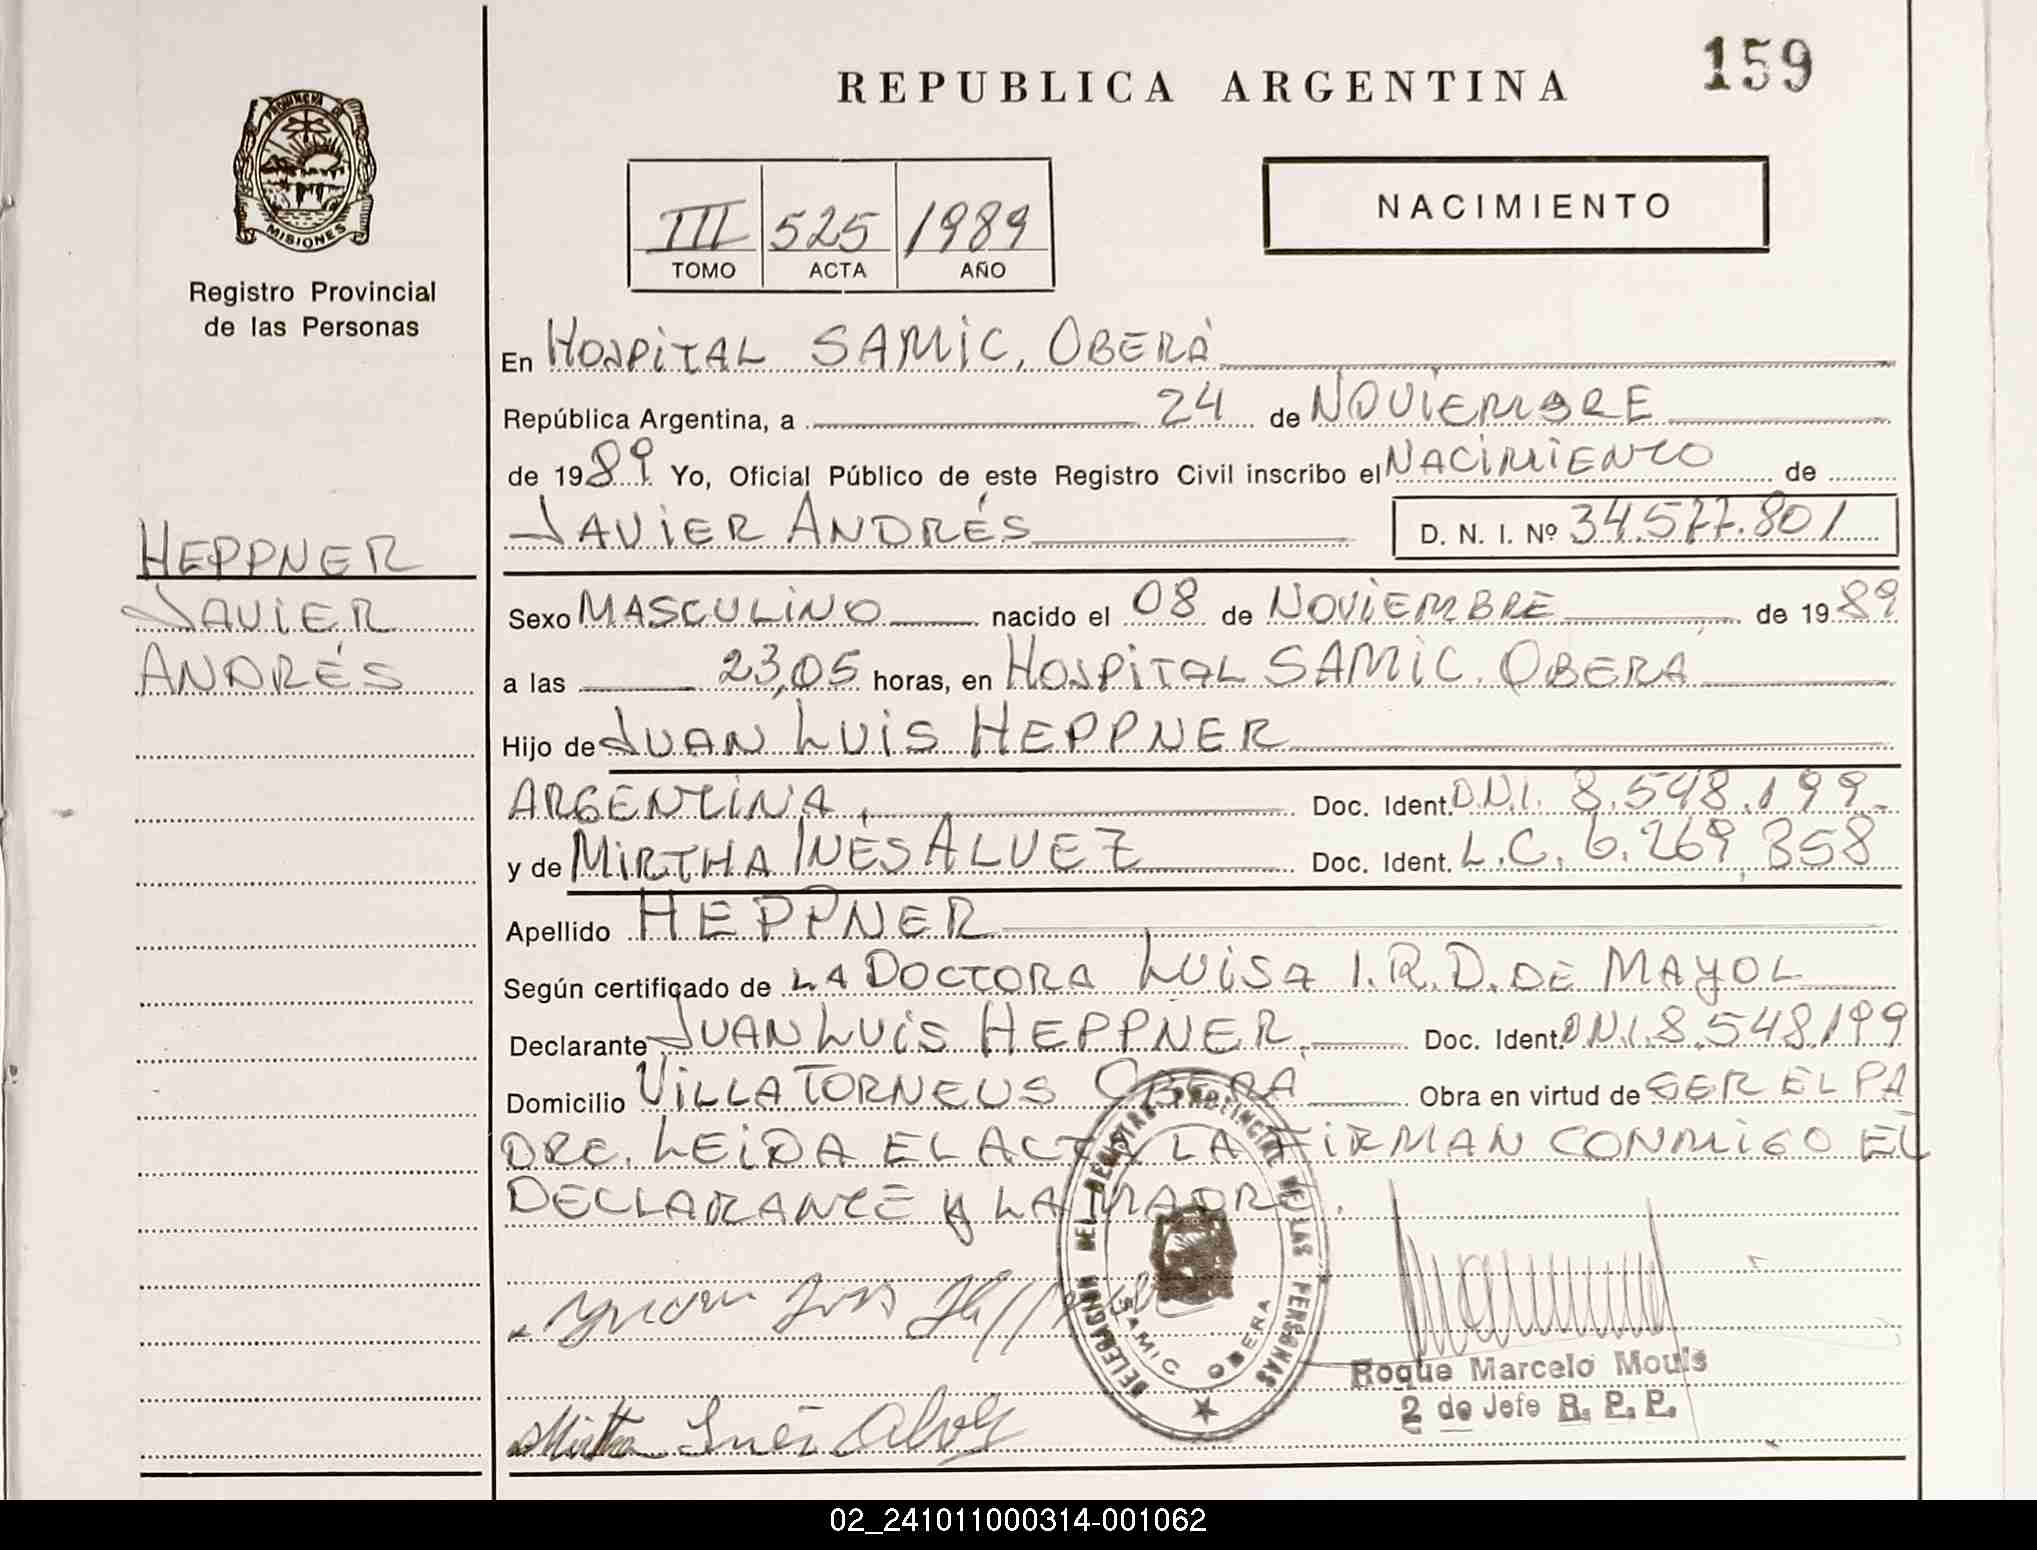 REPUBLICA ARGENTINA
159
PROVINCIA DE
MISIONES
Registro Provincial
de las Personas
III 525 1989
TOMO ACTA AÑO
NACIMIENTO
En HOSPITAL SAMIC, OBERÁ
República Argentina, a 24 de NOVIEMBRE
de 1989 Yo, Oficial Público de este Registro Civil inscribo el NACIMIENTO de
JAVIER ANDRÉS D. N. I. Nº 34.577.801
HEPPNER
JAVIER
ANDRÉS
Sexo MASCULINO nacido el 08 de NOVIEMBRE de 1989
a las 23,05 horas, en HOSPITAL SAMIC. OBERÁ
Hijo de JUAN LUIS HEPPNER
ARGENTINA, Doc. Ident. D.N.I. 8.548.199
y de MIRTHA INÉS ALVEZ Doc. Ident. L.C. 6.269.358
Apellido HEPPNER
Según certificado de LA DOCTORA LUISA I.R.D. DE MAYOL
Declarante JUAN LUIS HEPPNER, Doc. Ident. D.N.I. 8.548.199
Domicilio VILLA TORNEUS OBERÁ Obra en virtud de SER EL PA
DRE. LEIDA EL ACTA LA FIRMAN CONMIGO EL
DECLARANTE Y LA MADRE.
DELEGACION DEL REGISTRO PROVINCIAL DE LAS PERSONAS
SAMIC OBERA
Juan Luis Heppner
Roque Marcelo Mouls
2 do Jefe R. P. P.
Mirtha Inés Alvez
02_241011000314-001062